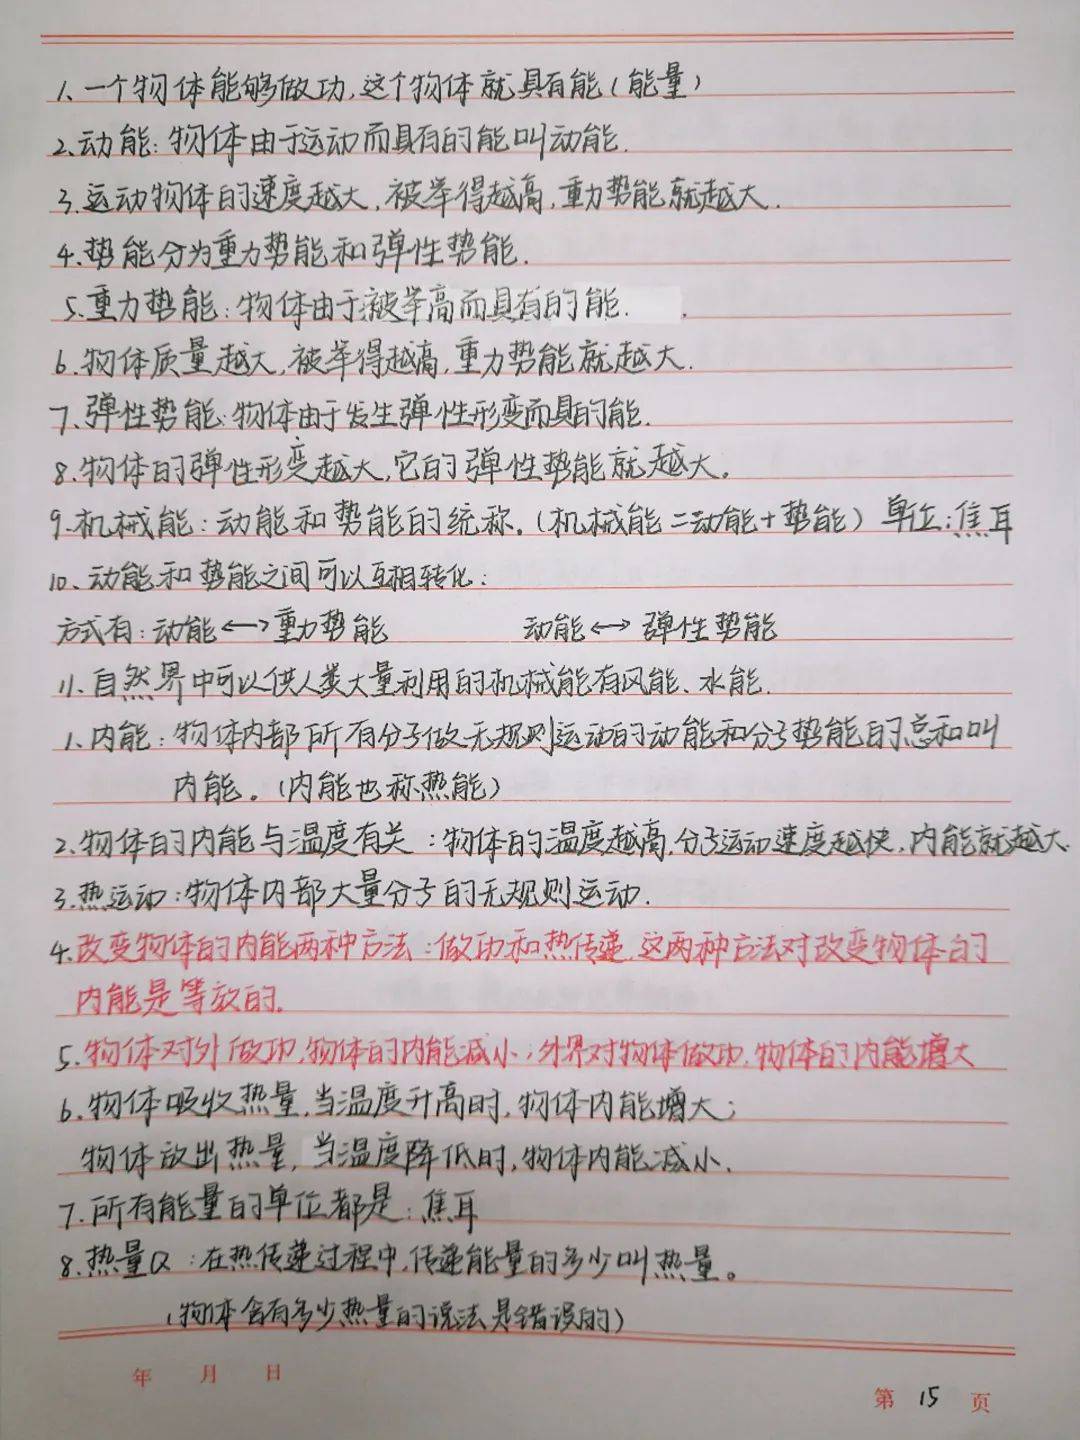 1、一个物体能够做功,这个物体就具有能(能量)
2、动能:物体由于运动而具有的能叫动能.
3、运动物体的速度越大,被举得越高,重力势能就越大.
4、势能分为重力势能和弹性势能.
5、重力势能:物体由于被举高而具有的能.
6、物体质量越大,被举得越高,重力势能就越大.
7、弹性势能:物体由于发生弹性形变而具的能.
8、物体的弹性形变越大,它的弹性势能就越大。
9、机械能:动能和势能的统称。(机械能=动能+势能) 单位:焦耳
10、动能和势能之间可以互相转化:
方式有:动能<->重力势能 动能<->弹性势能
11、自然界中可以供人类大量利用的机械能有风能、水能.
1、内能:物体内部所有分子做无规则运动的动能和分子势能的总和叫
内能。(内能也称热能)
2、物体的内能与温度有关:物体的温度越高,分子运动速度越快,内能就越大.
3、热运动:物体内部大量分子的无规则运动.
4、改变物体的内能两种方法:做功和热传递,这两种方法对改变物体的
内能是等放的.
5、物体对外做功,物体的内能减小;外界对物体做功,物体的内能增大
6、物体吸收热量,当温度升高时,物体内能增大;
物体放出热量,当温度降低时,物体内能减小.
7、所有能量的单位都是:焦耳
8、热量Q:在热传递过程中,传递能量的多少叫热量。
(物体含有多少热量的说法是错误的)
年 月 日
第 15 页